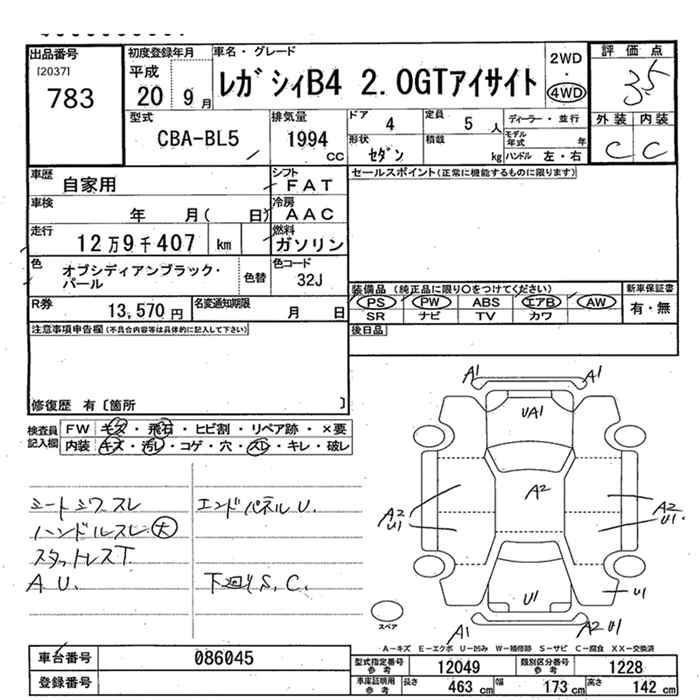 出品番号 [2037] 783
初度登録年月 平成 20 9月
車名・グレード レガシィB4 2.0GTアイサイト
2WD・4WD
評価点 3.5
外装 内装
C C
型式 CBA-BL5
排気量 1994 cc
ドア 4
定員 5 人
形状 セダン
積載 kg
ディーラー・並行
モデル年式 年
ハンドル 左・右
車歴 自家用
シフト FAT
車検 年 月( 日)
冷房 AAC
走行 12万9千407 km
燃料 ガソリン
色 オブシディアンブラック・パール
色替
色コード 32J
R券 13,570円
名変通知期限 月 日
セールスポイント(正常に機能するものに限ります)
装備品 (純正品に限り○をつけてください)
PS PW ABS エアB AW
SR ナビ TV カワ
新車保証書 有・無
後日品
注意事項申告欄(不具合内容等は具体的に記入して下さい)
修復歴 有〔箇所 〕
検査員記入欄
FW キズ・飛石・ヒビ割・リペア跡・×要
内装 キズ・汚レ・コゲ・穴・スレ・キレ・破レ
シートシワ、スレ
ハンドルスレ大
スタットレスT
A.U.
エンドパネルU.
下廻りS.C.
A1 A1
UA1
A2
A2 U1
A2 U1
U1
U1
A1
A2 U1
スペア
A-キズ E-エクボ U-凹み W-補修跡 S-サビ C-腐食 XX-交換済
車台番号 086045
登録番号
型式指定番号 参考 12049
類別区分番号 参考 1228
車庫証明用 参考 長さ 463 cm 幅 173 cm 高さ 142 cm